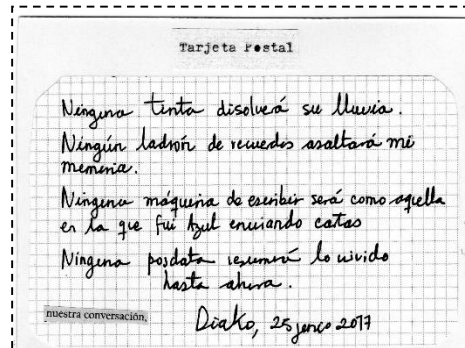 Tarjeta Postal
Ninguna tinta disolverá su lluvia.
Ningún ladrón de recuerdos asaltará mi
memoria.
Ninguna máquina de escribir será como aquella
en la que fui Azul enviando cartas
Ninguna posdata resumirá lo vivido
hasta ahora.
nuestra conversación,
Diako, 25 2017